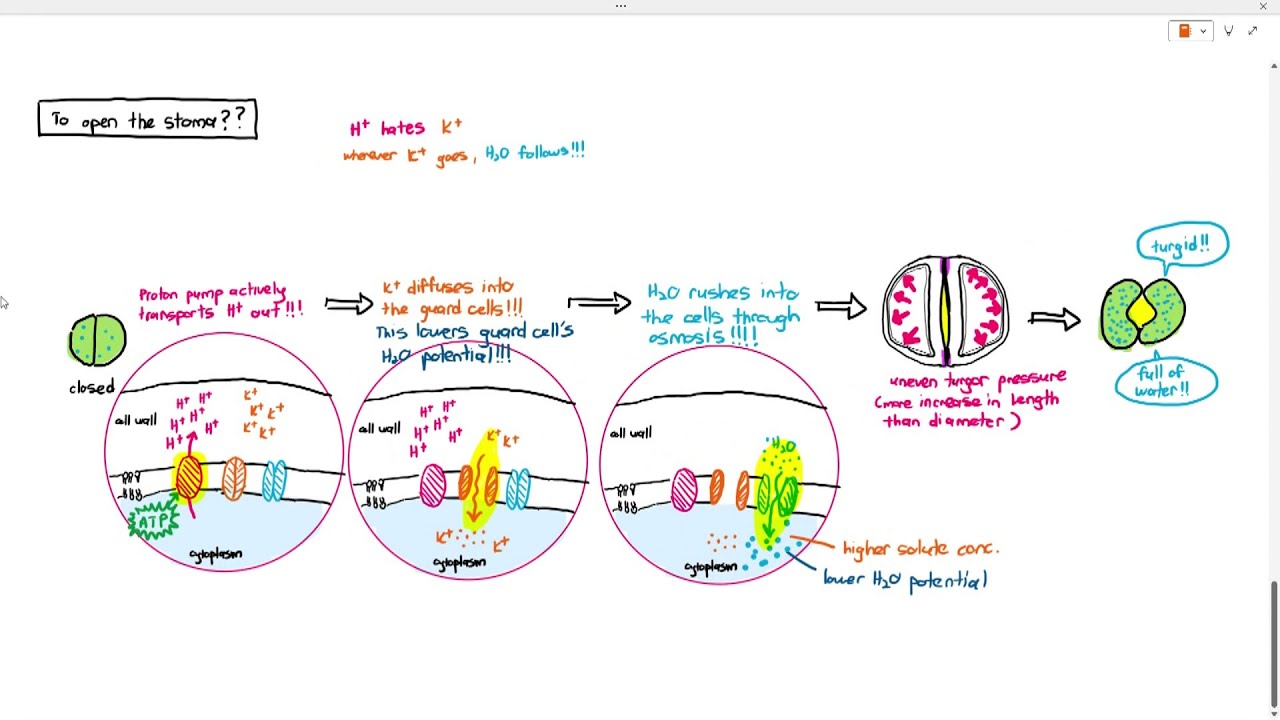 To open the stoma??
H⁺ hates K⁺
wherever K⁺ goes, H₂O follows!!!
Proton pump actively
transports H⁺ out!!!
K⁺ diffuses into
the guard cells!!!
This lowers guard cell's
H₂O potential!!!
H₂O rushes into
the cells through
osmosis!!!!
uneven turgor pressure
(more increase in length
than diameter)
turgid!!
full of
water!!
closed
cell wall
H⁺ H⁺
H⁺ H⁺
H⁺ H⁺
H⁺
K⁺
K⁺ K⁺
K⁺ K⁺
ATP
cytoplasm
cell wall
H⁺ H⁺
H⁺ H⁺
H⁺ H⁺
K⁺ K⁺
K⁺ K⁺
cytoplasm
cell wall
H₂O
cytoplasm
higher solute conc.
lower H₂O potential